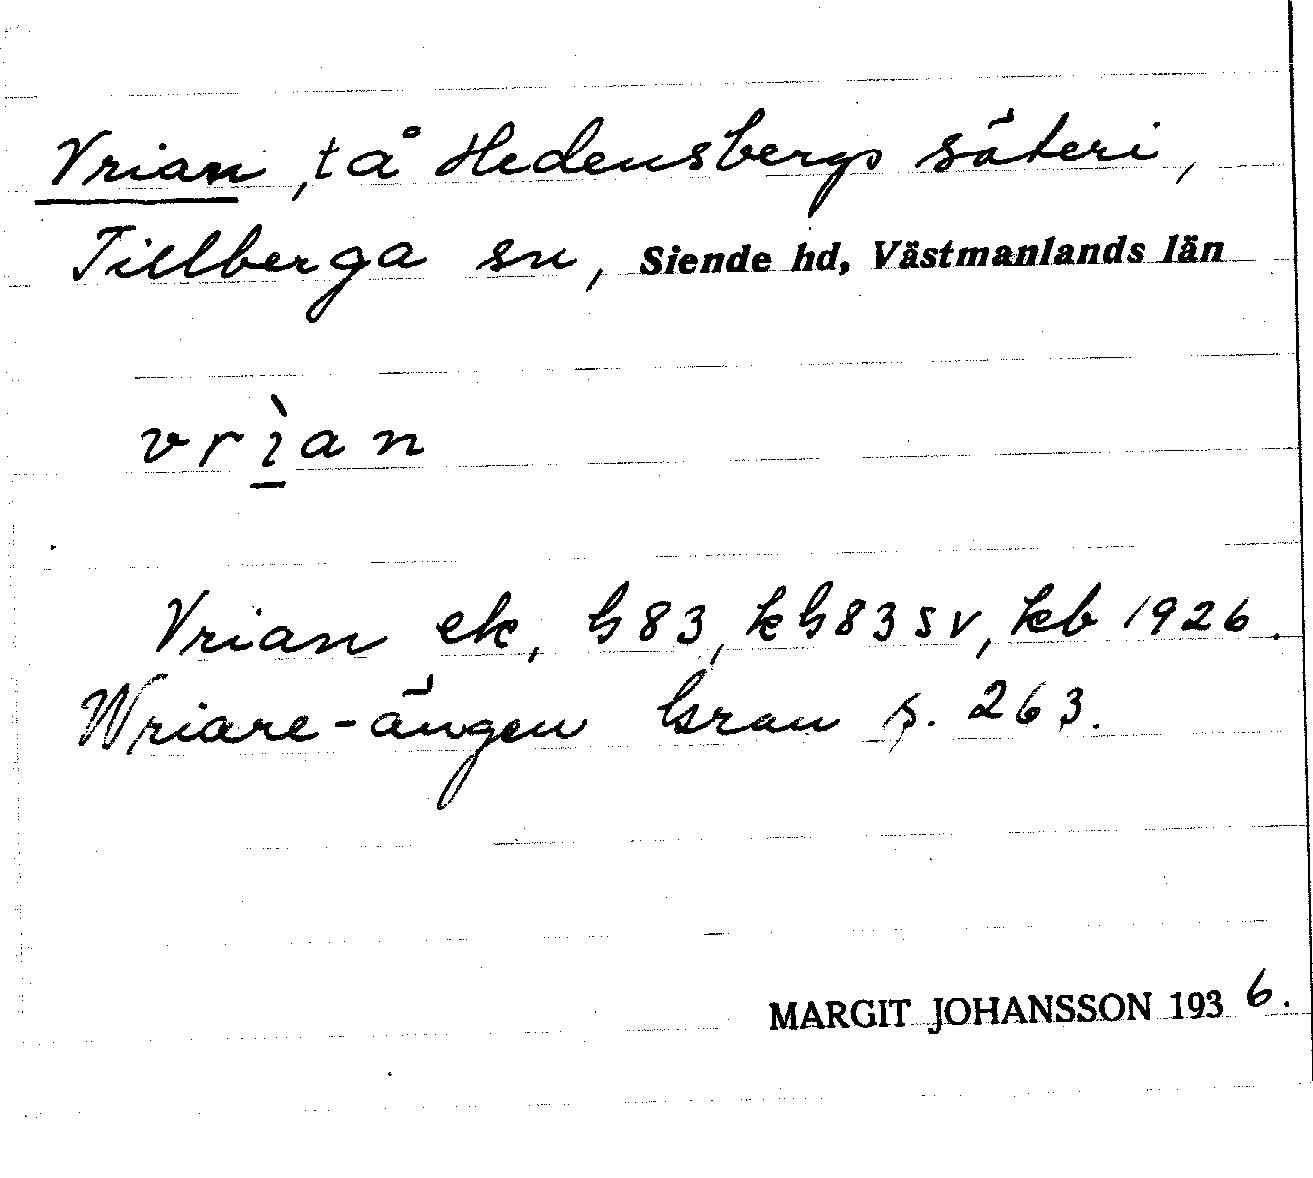 Vrian, tå Hedensbergs säteri,
Tillberga sn, Siende hd, Västmanlands län
vrìan
Vrian ek, G83, kG83 sv, kb 1926.
Wriare-ängen Grau s. 263.
MARGIT JOHANSSON 1936.